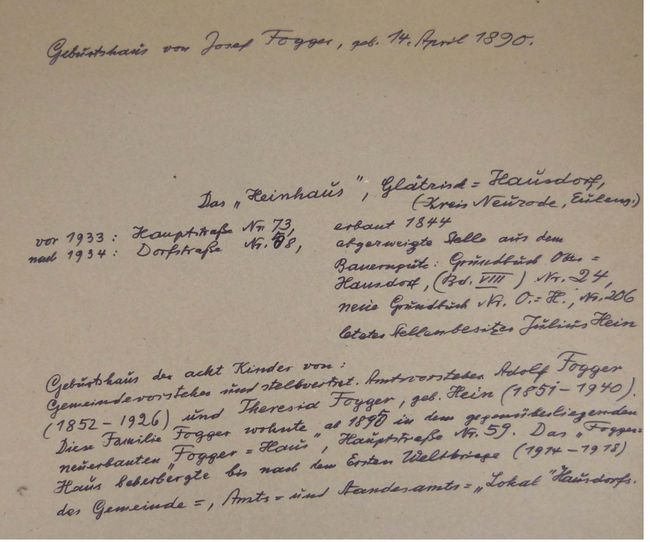 Geburtshaus von Josef Fogger, geb. 14. April 1890.
Das „Heinhaus", Glätzisch = Hausdorf,
(Kreis Neurode, Euleng.)
vor 1933: Hauptstraße Nr. 73,
nach 1934: Dorfstraße Nr. 68,
erbaut 1844
abgezweigte Stelle aus dem
Bauerngute: Grundbuch Ober =
Hausdorf, (Bd. VIII) Nr. 24,
neue Grundbuch Nr. O.=H., Nr. 206
letzter Stellenbesitzer Julius Hein
Geburtshaus der acht Kinder von:
Gemeindevorsteher und stellvertret. Amtvorsteher Adolf Fogger
(1852-1926) und Theresia Fogger, geb. Hein (1851-1940).
Diese Familie Fogger wohnte ab 1890 in dem gegenüberliegenden
neuerbauten „Fogger = Haus", Hauptstraße Nr. 59. Das „Fogger=
Haus beherbergte bis nach dem Ersten Weltkriege (1914-1918)
das Gemeinde =, Amts = und Standesamts = „Lokal" Hausdorfs.